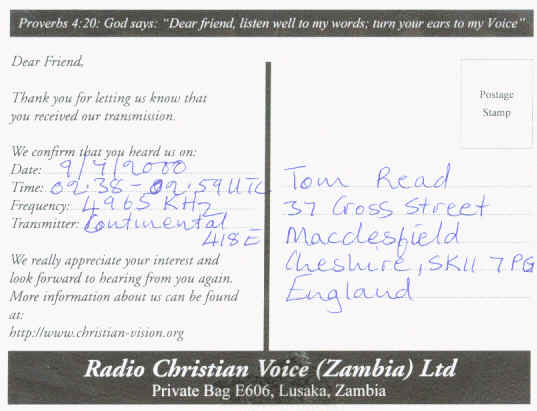 Proverbs 4:20: God says: "Dear friend, listen well to my words; turn your ears to my Voice"
Dear Friend,
Thank you for letting us know that
you received our transmission.
We confirm that you heard us on:
Date: 9/7/2000
Time: 02.38 - 02.59 UTC
Frequency: 4965 KHz
Transmitter: Continental
418E
We really appreciate your interest and
look forward to hearing from you again.
More information about us can be found
at:
http://www.christian-vision.org
Postage
Stamp
Tom Read
37 Cross Street
Macclesfield
Cheshire, SK11 7PG
England
Radio Christian Voice (Zambia) Ltd
Private Bag E606, Lusaka, Zambia